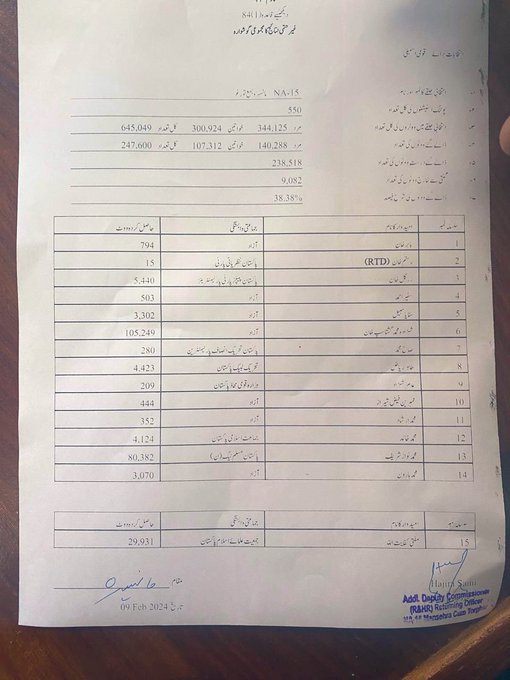 دیکھیے قاعدہ 84(1)
غیر حتمی نتائج کا مجموعی گوشوارہ
انتخابات برائے قومی اسمبلی
انتخابی حلقے کا نمبر اور نام NA-15 مانسہرہ
پولنگ اسٹیشنوں کی کل تعداد 550
انتخابی حلقے میں ووٹروں کی کل تعداد مرد 344,125 خواتین 300,924 کل تعداد 645,049
ڈالے گئے ووٹوں کی تعداد مرد 140,288 خواتین 107,312 کل تعداد 247,600
ڈالے گئے درست ووٹوں کی تعداد 238,518
گنتی سے خارج ووٹوں کی تعداد 9,082
ڈالے گئے ووٹوں کی شرح فیصد 38.38%
سلسلہ نمبر امیدوار کا نام جماعتی وابستگی حاصل کردہ ووٹ
1 بابر خان آزاد 794
2 خان (RTD) پاکستان نظریاتی پارٹی 15
3 زرگل خان پاکستان پیپلز پارٹی پارلیمنٹیرینز 5,440
4 آزاد 503
5 آزاد 3,302
6 شہزادہ محمد گشتاسپ خان آزاد 105,249
7 صالح محمد پاکستان تحریک انصاف پارلیمنٹیرین 280
8 تحریک لبیک پاکستان 4,423
9 قومی محاذ پاکستان 209
10 آزاد 444
11 آزاد 352
12 محمد خالد جماعت اسلامی پاکستان 4,124
13 محمد نواز شریف پاکستان مسلم لیگ (ن) 80,382
14 محمد ہارون آزاد 3,070
سلسلہ نمبر امیدوار کا نام جماعتی وابستگی حاصل کردہ ووٹ
15 مفتی کفایت اللہ جمعیت علمائے اسلام پاکستان 29,931
مقام مانسہرہ
تاریخ 09 Feb 2024
Addl. Deputy Commissioner
(R&HR) Returning Officer
Mansehra Cum Torghar